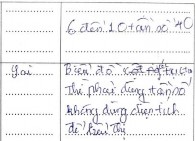 6 đến 10 tần số 40
Sai
Biểu đồ cột
thì phải dùng tần số
không dùng diện tích
để biểu thị